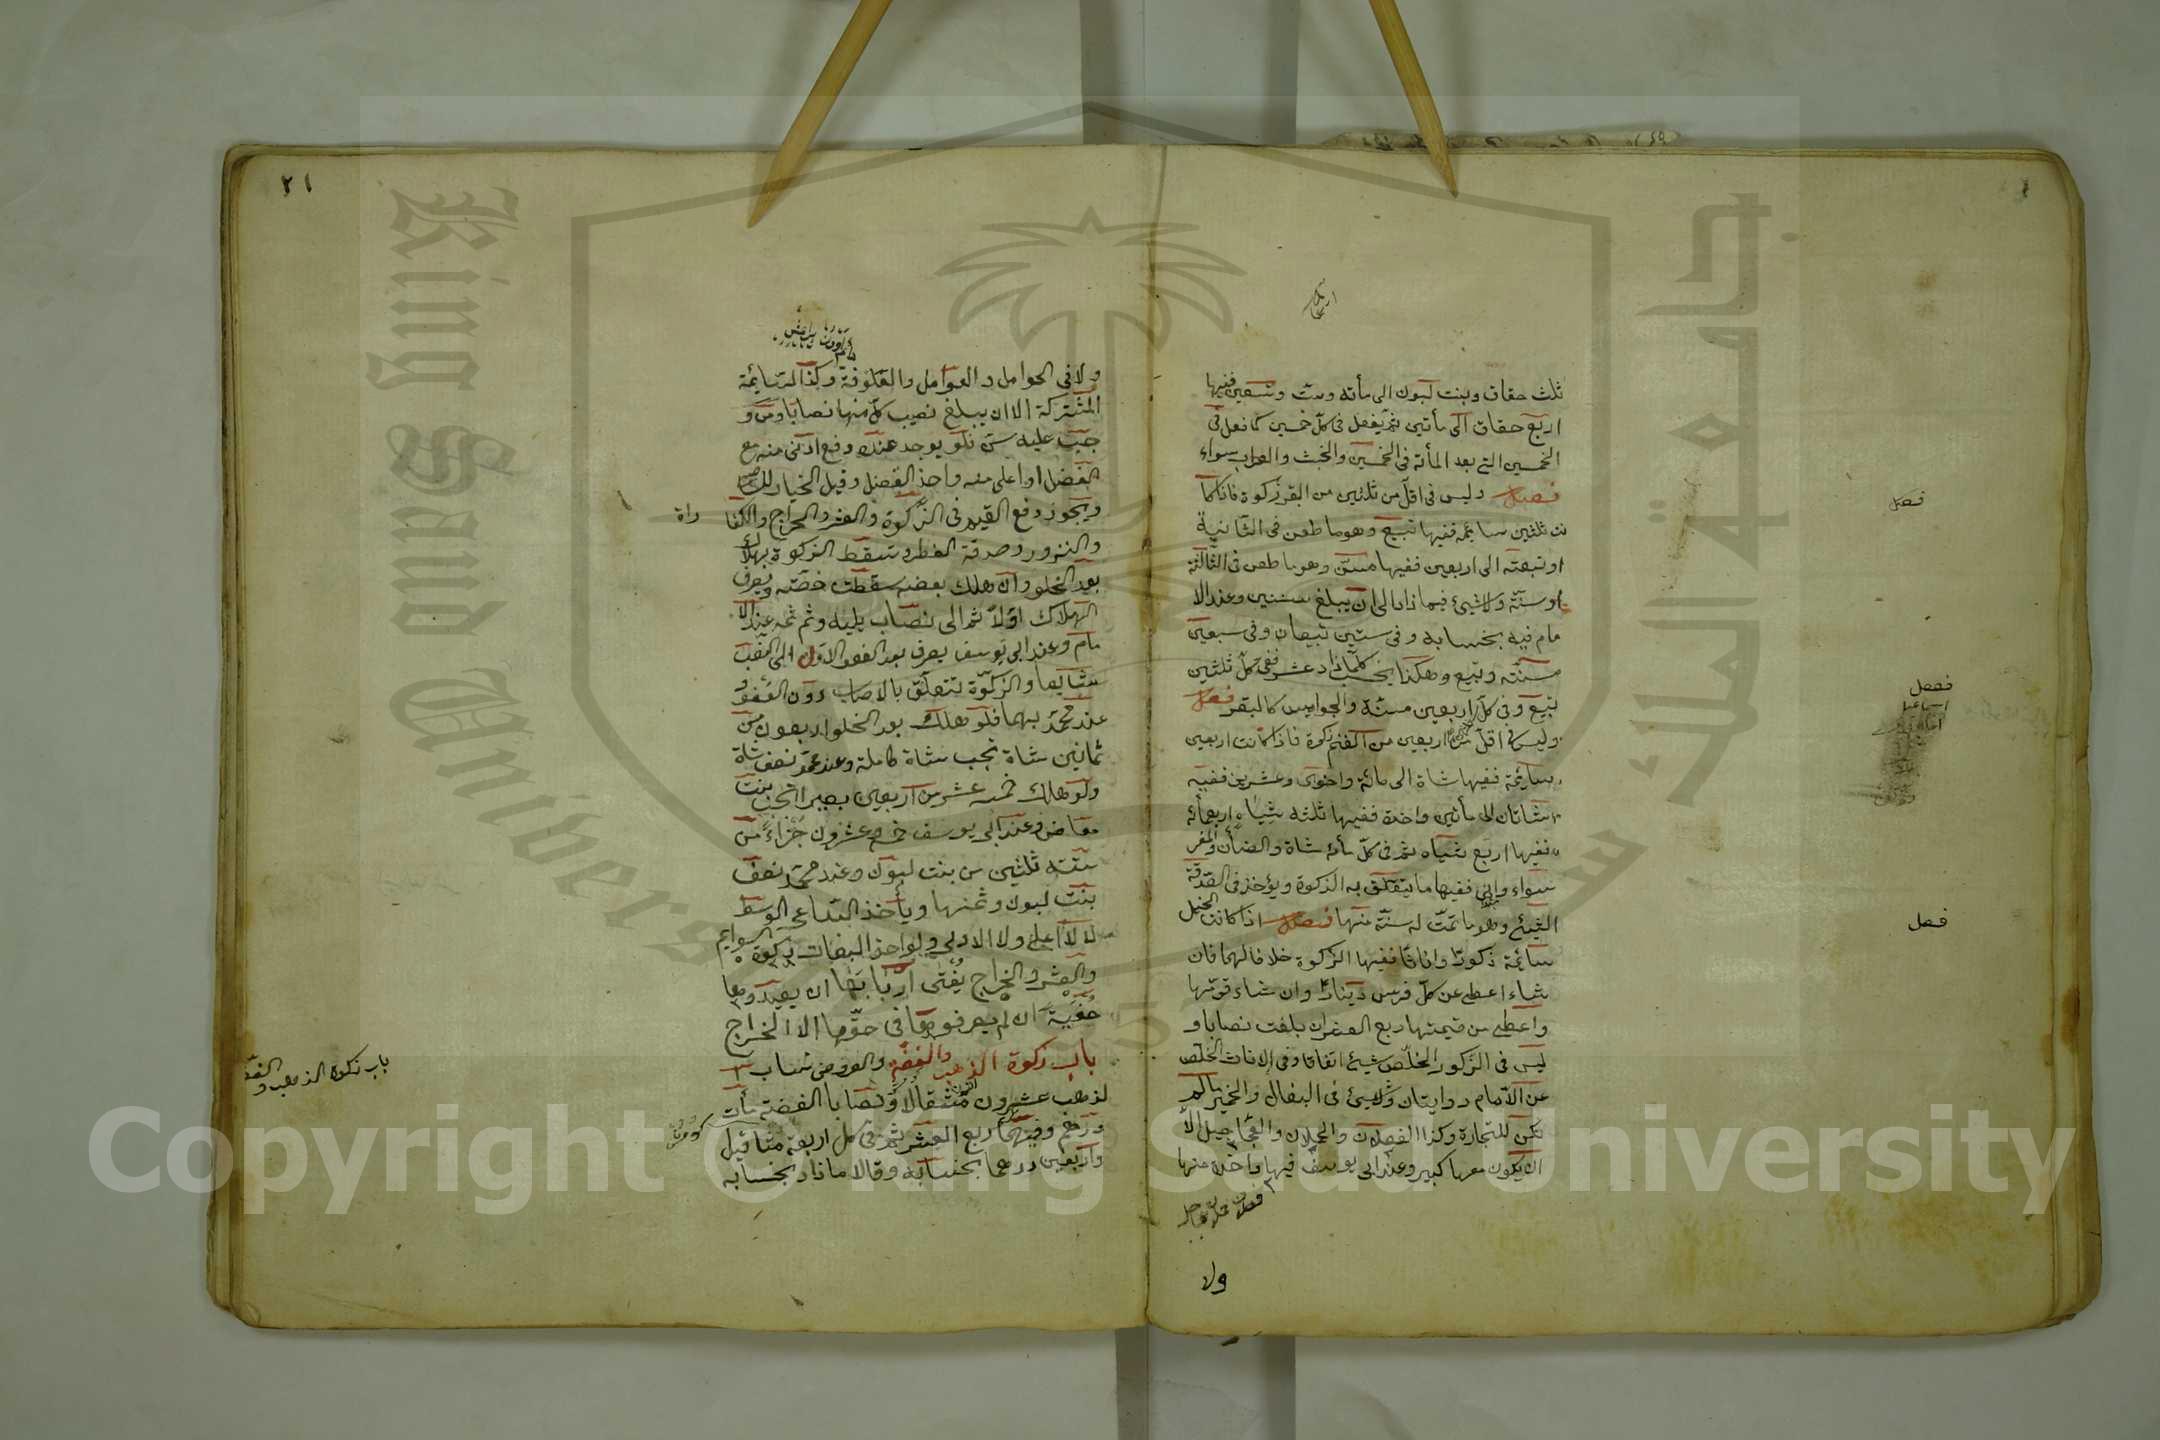 ثلث حقاق وبنت لبون الى مأته وست وتسعين ففيها
اربع حقاق الى مأتين ثم يفعل فى كل خمسين كما فعل فى
الخمسين التى بعد المأته فى الخمسين والبخت والعراب سواء
فصل وليس فى اقل من ثلثين من البقر زكوة فاذا كا
نت ثلثين سايمه ففيها تبيع وهو ما طعن فى الثانية
او تبيعة الى اربعين ففيها مسن وهو ما طعن فى الثالثة
او مسنة ولا شيئ فيما زاد الى ان يبلغ ستين وعند الا
مام فيه بحسابه وفى ستين تبيعان وفى سبعين
مسنة وتبيع وهكذا يحسب كلما زاد عشر ففى كل ثلثين
تبيع وفى كل اربعين مسنة والجواميس كالبقر فصل
وليس فى اقل من اربعين من الغنم زكوة فاذا كانت اربعين
سايمة ففيها شاة الى مائة واحدى وعشرين ففيه
شاتان الى مأتين واحدة ففيها ثلثه شياه اربعمائة
ففيها اربع شياه ثم فى كل مأة شاة والضأن والمعز
سواء وادنى ففيها ما يتعلق به الزكوة ويؤخذ فى الصدقة
الثنى وهو ما تمت له سنة منها فصل اذا كانت الخيل
سائمة ذكورا واناثا ففيها الزكوة خلافا لهما فان
شاء اعطى عن كل فرس دينارا وان شاء قومها
واعطى من قيمتها ربع العشر ان بلغت نصابا و
ليس فى الذكور الخلص شيئ اتفاقا وفى الاناث الخلص
عن الامام روايتان ولا شيئ فى البغال والحمير مالم
يكن للتجارة وكذا الفصلان والحملان والعجاجيل الا
ان يكون معها كبير وعند ابى يوسف فيها واحدة منها
ولا
فصل
فصل
فصل
٢١
ولا فى الحوامل والعوامل والعلوفة وكذا السايمة
المشتركة الا ان يبلغ نصيب كل منها نصابا ومن و
جب عليه سن فلو يوجد عنده دفع ادنى منه مع
الفضل او اعلى منه واخذ الفضل وقيل الخيار للساعى
ويجوز دفع القيم فى الزكوة والعشر والخراج والكفا
راة
والنذور وصدقة الفطر وتسقط الزكوة بهلاك
بعد الحلو وان هلك بعضه سقطت حصته ويصرف
الهلاك اولا ثم الى نصاب يليه وثم ثمه عند الا
مام وعند ابى يوسف يصرف بعد العفو الاول الى النصب
شايعا والزكوة تتعلق بالاصاب دون العفو و
عند محمد بهما فلو هلك بعد الحلو اربعون من
ثمانين شاة تجب شاة كاملة وعند محمد نصف شاة
ولو هلك خمسه عشر من اربعين بعيرا تجب بنت
مخاض وعند ابى يوسف خمسه وعشرون جزاء من
ستة ثلثين من بنت لبون وعند محمد نصف
بنت لبون وثمنها ويأخذ الساعى الوسط
لا الاعلى ولا الادنى ولو اخذ البغات زكوة السوايم
والعشر والخراج يفتى اربابها ان يعيدوها
خفية ان لم يصرفوها فى حقها الا الخراج
باب زكوة الذهب والفضة والعروض نصاب ا
لذهب عشرون مثقالا ونصابا الفضة مأت
درهم وفيهما ربع العشر ثم فى كل اربعة مثاقيل
واربعين درهما بحسابه وقالا ما زاد بحسابه
باب زكوة الذهب والفض
King Saud University
جامعة الملك سعود
Copyright © King Saud University